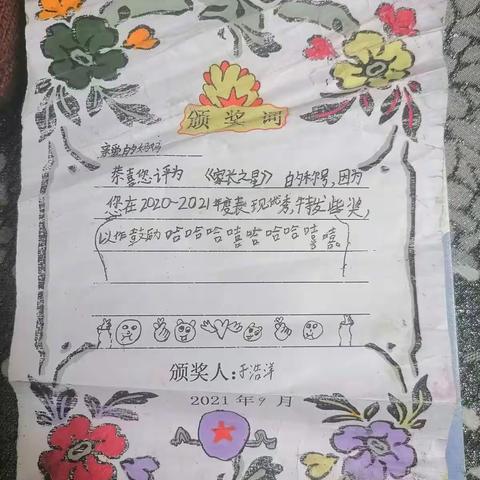 颁奖词
亲爱的妈妈
恭喜您评为《家长之星》的称号,因为
您在2020~2021年度表现优秀,特发此奖,
以作鼓励哈哈哈嘻哈哈哈嘻嘻。
颁奖人:于浩洋
2021年9月